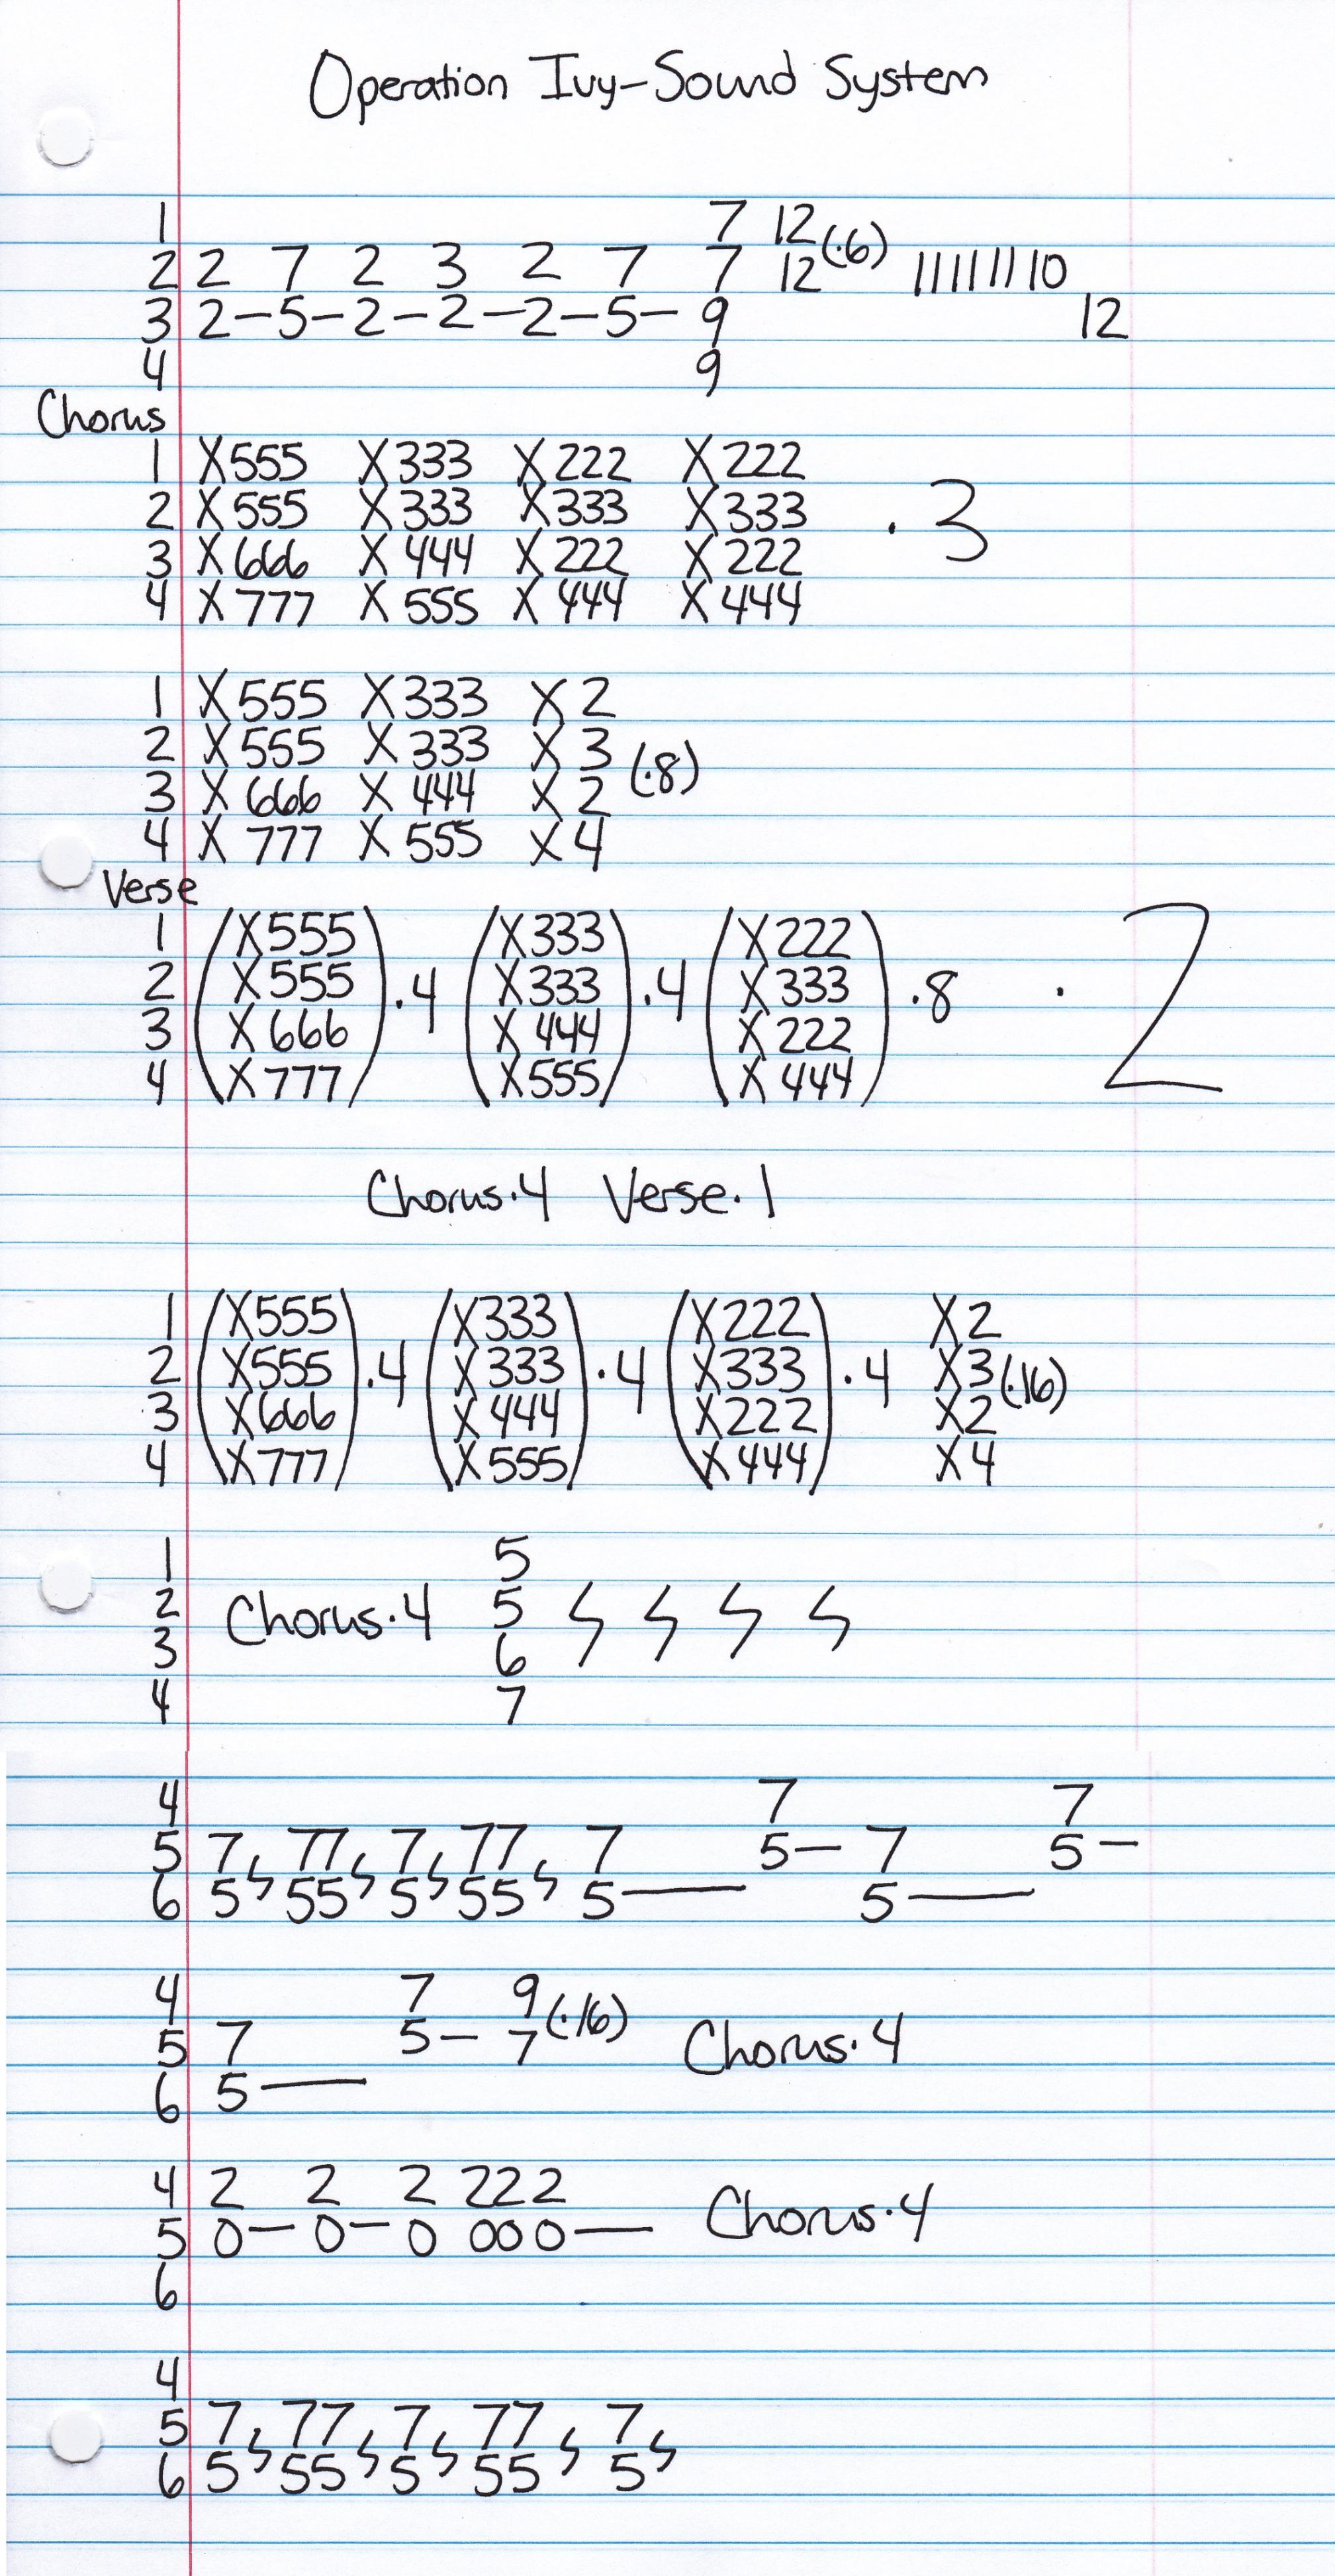 Operation Ivy-Sound System
1 7 12
2 2 7 2 3 2 7 7 12 (·6) 11 11 11 11 10
3 2-5-2-2-2-5- 9 12
4 9
Chorus
1 X555 X333 X222 X222
2 X555 X333 X333 X333 ·3
3 X666 X444 X222 X222
4 X777 X555 X444 X444
1 X555 X333 X2
2 X555 X333 X3 (·8)
3 X666 X444 X2
4 X777 X555 X4
Verse
1 (X555) (X333) (X222)
2 (X555) ·4 (X333) ·4 (X333) ·8 ·2
3 (X666) (X444) (X222)
4 (X777) (X555) (X444)
Chorus·4 Verse·1
1 (X555) (X333) (X222) X2
2 (X555) ·4 (X333) ·4 (X333) ·4 X3 (·16)
3 (X666) (X444) (X222) X2
4 (X777) (X555) (X444) X4
1 5
2 Chorus·4 5
3 6
4 7
4 7 7
5 7 77 7 77 7 5- 7 5-
6 5 55 5 55 5— 5—
4 7 9
5 7 5- 7 (·16) Chorus·4
6 5—
4 2 2 2 222
5 0-0-0 000— Chorus·4
6
4
5 7 77 7 77 7
6 5 55 5 55 5